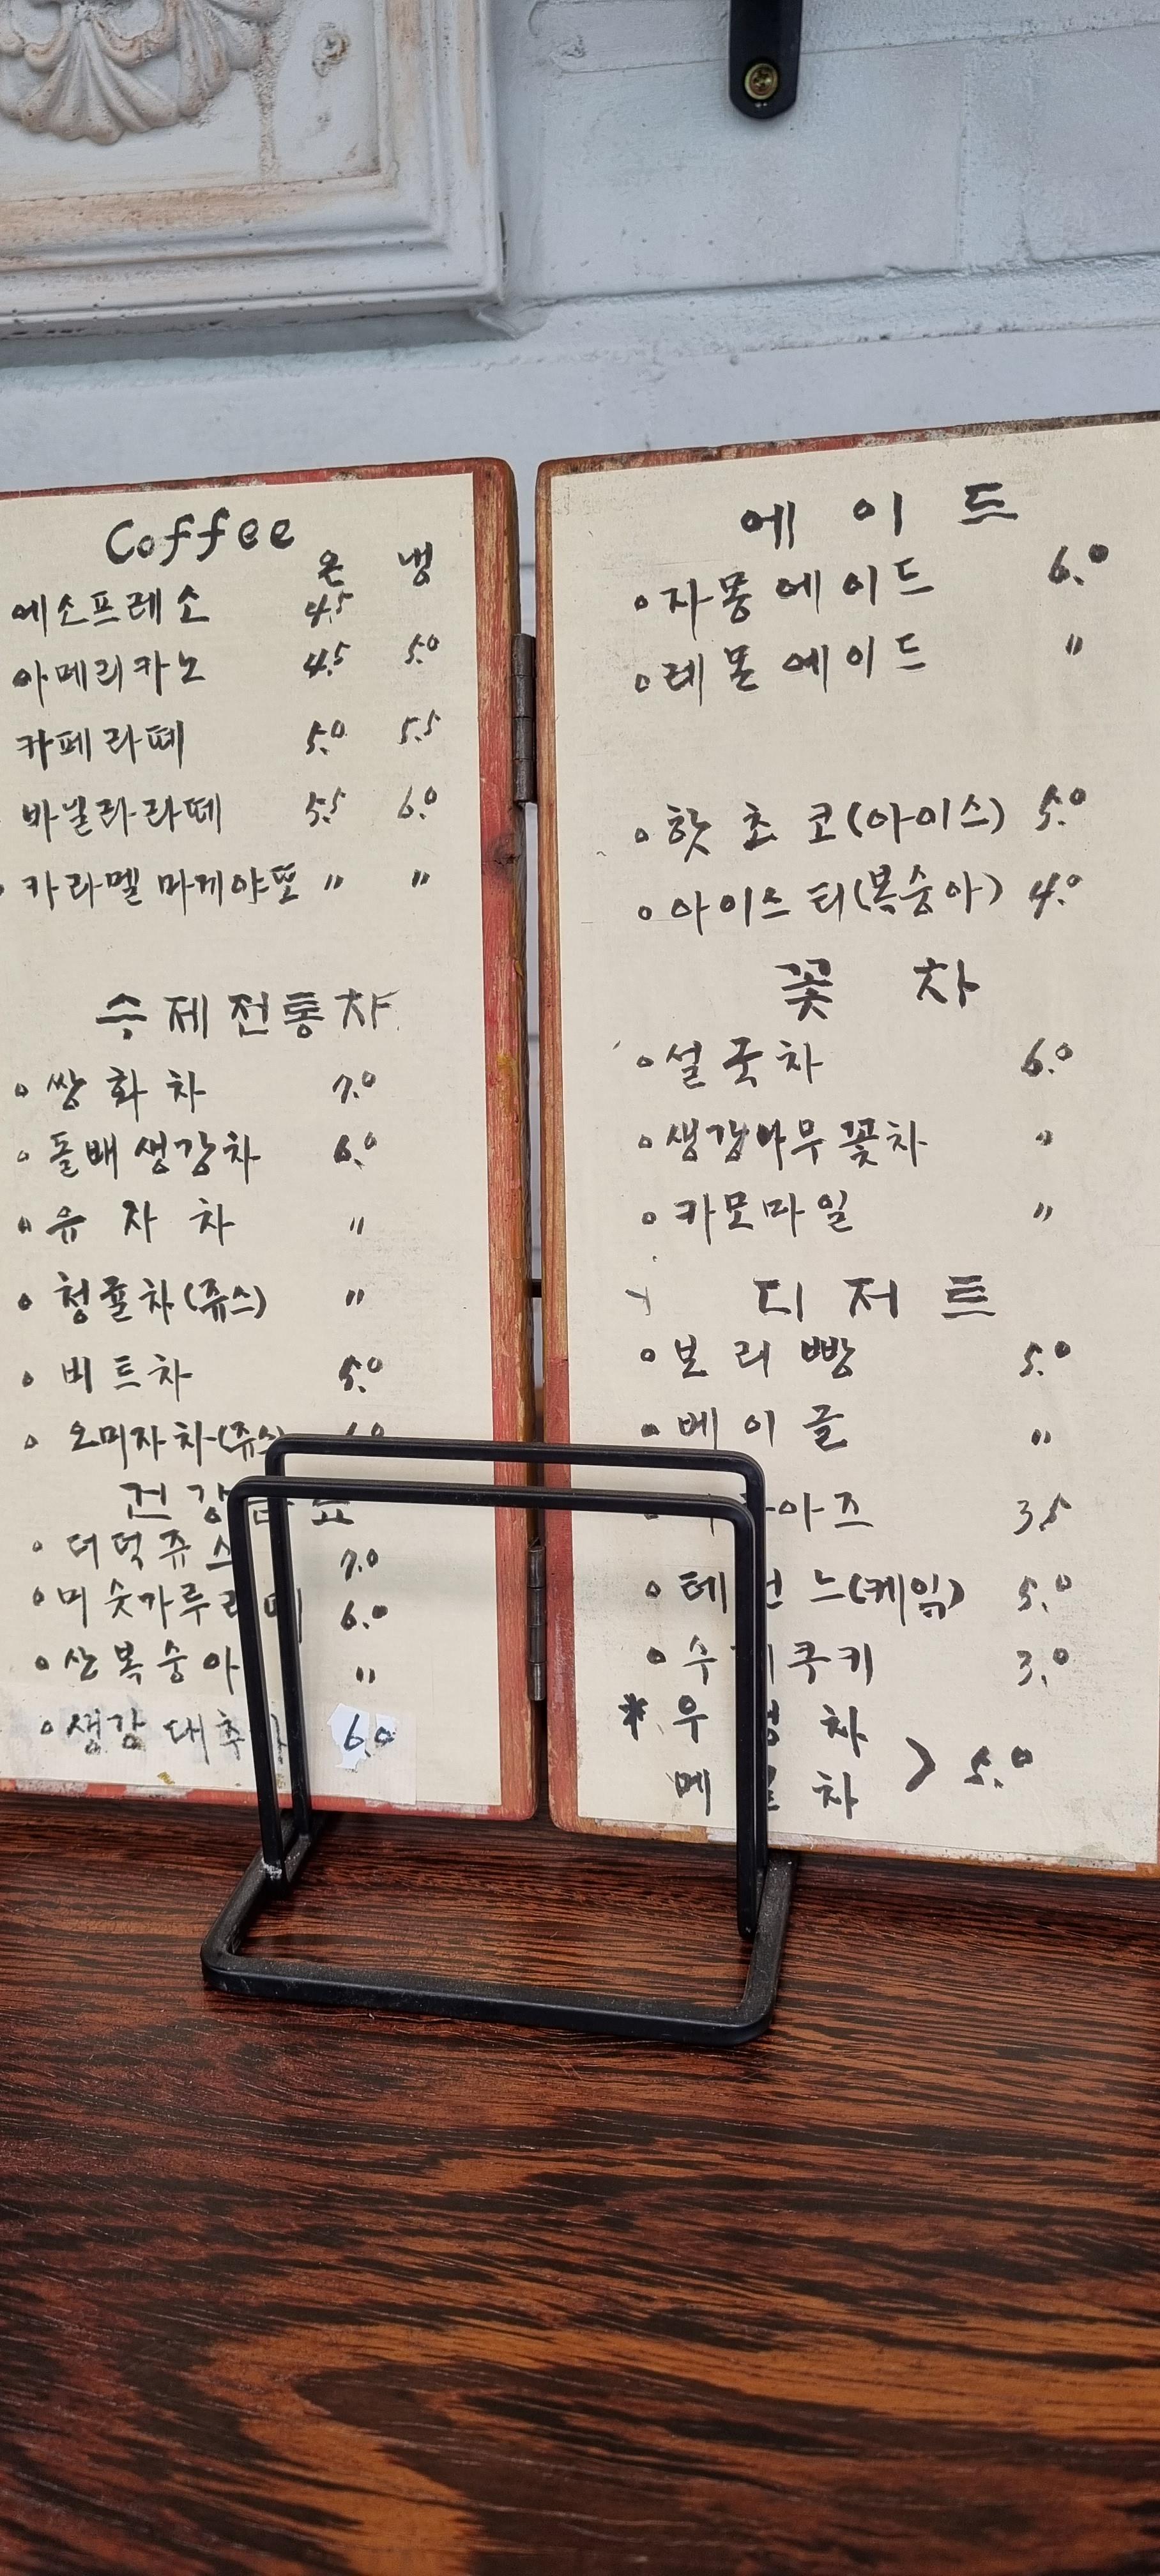 Coffee
온 냉
에소프레소 4.5
아메리카노 4.5 5.0
카페라떼 5.0 5.5
바닐라라떼 5.5 6.0
카라멜 마끼야또 〃 〃
수제전통차
쌍화차 7.0
돌배생강차 6.0
유자차 〃
청귤차(쥬스) 〃
비트차 5.0
오미자차(쥬스)
건강
더덕쥬스 7.0
미숫가루 6.0
산복숭아 〃
생강대추 6.0
에이드
자몽에이드 6.0
레몬에이드 〃
핫초코(아이스) 5.0
아이스티(복숭아) 4.0
꽃차
설국차 6.0
생강나무꽃차 〃
카모마일 〃
디저트
보리빵 5.0
베이글 〃
3.5
(케잌) 5.0
쿠키 3.0
* 우 차
메 차 > 5.0